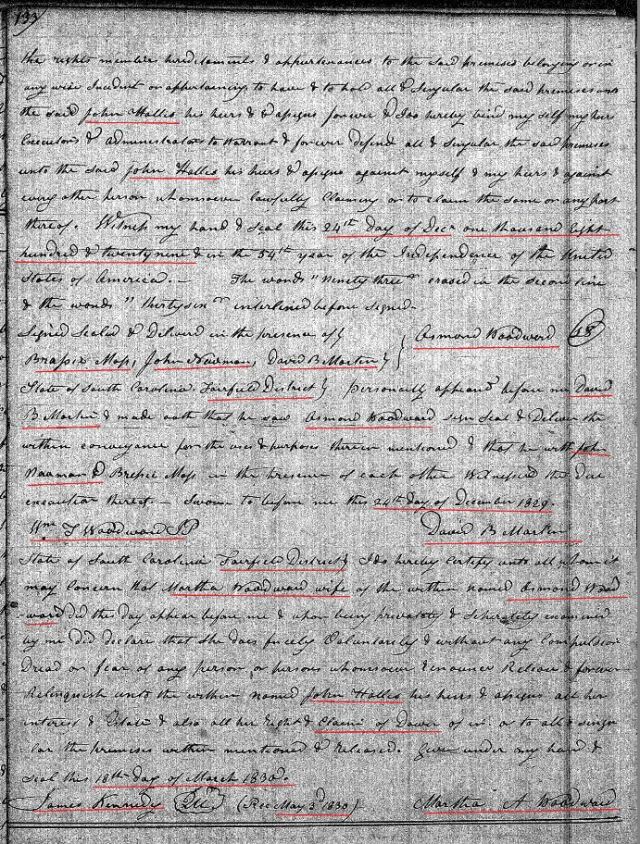 133
the rights members hereditaments & appurtenances to the said premises belonging or in
any wise incident or appertaining to have & to hold all & singular the said premises unto
the said John Hollis his heirs & assigns forever & I do hereby bind my self my heirs
Executors & administrators to Warrant & forever defend all & singular the said premises
unto the said John Hollis his heirs & assigns against myself & my heirs & against
every other person whomsoever lawfully Claiming or to claim the same or any part
thereof. Witness my hand & Seal this 24th day of Decr one thousand Eight
hundred & twenty nine & in the 54th year of the Independence of the United
States of America. — The words "Ninety three" erased in the second line
& the words "thirty six" interlined before signed.
Signed Sealed & Delivered in the presence of } Osmond Woodward LS
Moss, John Nauman, David B Martin }
State of South Carolina Fairfield District } Personally appeared before me David
B Martin & made oath that he saw Osmond Woodward sign Seal & Deliver the
within conveyance for the uses & purposes therein mentioned & that he with John
Nauman & Moss in the presence of each other Witnessed the due
execution thereof. — Sworn to before me this 24th day of December 1829.
Wm T Woodward JP David B Martin
State of South Carolina Fairfield District } I do hereby Certify unto all whom it
may Concern that Martha Woodward wife of the within named Osmond Wood
ward did this day appear before me & upon being privately & seperately examined
by me did declare that She does freely Voluntarily & without any Compulsion
Dread or fear of any person or persons whomsoever renounce Release & forever
Relinquish unto the within named John Hollis his heirs & assigns all her
interest & Estate & also all her Right & Claim of Dower of in or to all & singu
lar the premises within mentioned & Released. Given under my hand &
Seal this 18th day of March 1830.
James Kennedy QM (Rec May 3d 1830) Martha A Woodward